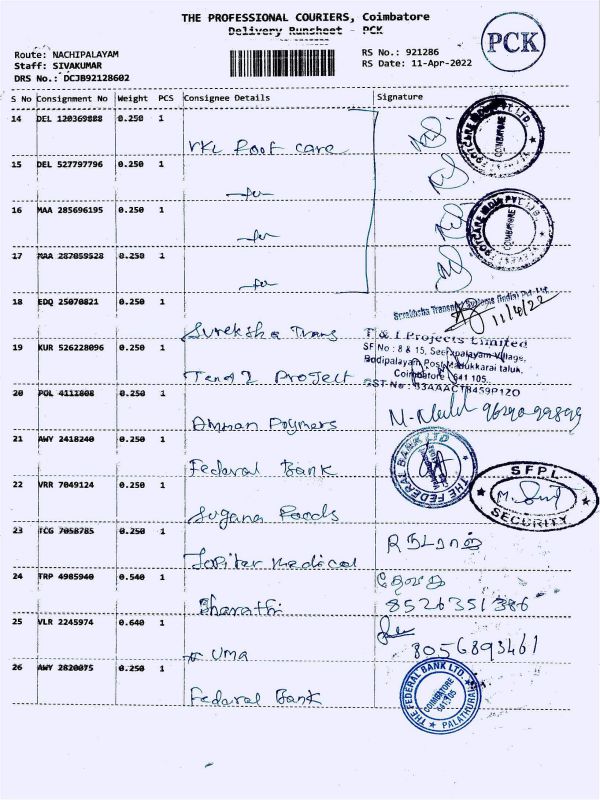 THE PROFESSIONAL COURIERS, Coimbatore
Delivery Runsheet - PCK
PCK
Route: NACHIPALAYAM
Staff: SIVAKUMAR
DRS No.: DCJB92128602
RS No.: 921286
RS Date: 11-Apr-2022
S No Consignment No Weight PCS Consignee Details Signature
14 DEL 120369888 0.250 1
VKC Foot care
15 DEL 527797796 0.250 1
16 MAA 285696195 0.250 1
17 MAA 287059528 0.250 1
18 EDQ 25070821 0.250 1
Sureksha Trans
Surekksha Transport Systems (India) Pvt. Ltd.
11/4/22
19 KUR 526228096 0.250 1
T and I Project
T & I Projects Limited
SF No : 8 & 15, Seerapalayam Village,
Bodipalayam Post, Madukkarai taluk,
Coimbatore 641 105.
GST No : 33AAACT8459P1ZO
20 POL 4111808 0.250 1
Amman Polymers
21 AWY 2418240 0.250 1
Federal Bank
THE FEDERAL BANK LTD
22 VRR 7049124 0.250 1
Suguna Foods
SFPL
SECURITY
23 TCG 7058785 0.250 1
Jupiter Medical
24 TRP 4985940 0.540 1
Bharathi
8526351386
25 VLR 2245974 0.640 1
Uma
8056893461
26 AWY 2820075 0.250 1
Federal Bank
THE FEDERAL BANK LTD.
COIMBATORE
641105
PALATHURAI